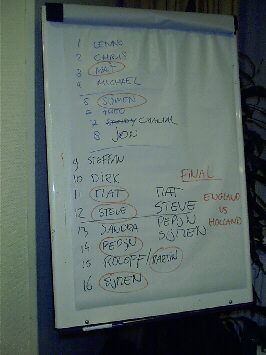 1 LENNO
2 CHRIS
3 MAT
4 MICHAEL
5 SIJMEN
6
7
8 JON
9 STEFFAN
10 DIRK
11 MAT
12 STEVE
13 SANDRA
14 PEPIJN
15 ROLOFF/MARTIJN
16 SIJMEN
FINAL
MAT
STEVE
PEPIJN
SIJMEN
ENGLAND
VS
HOLLAND